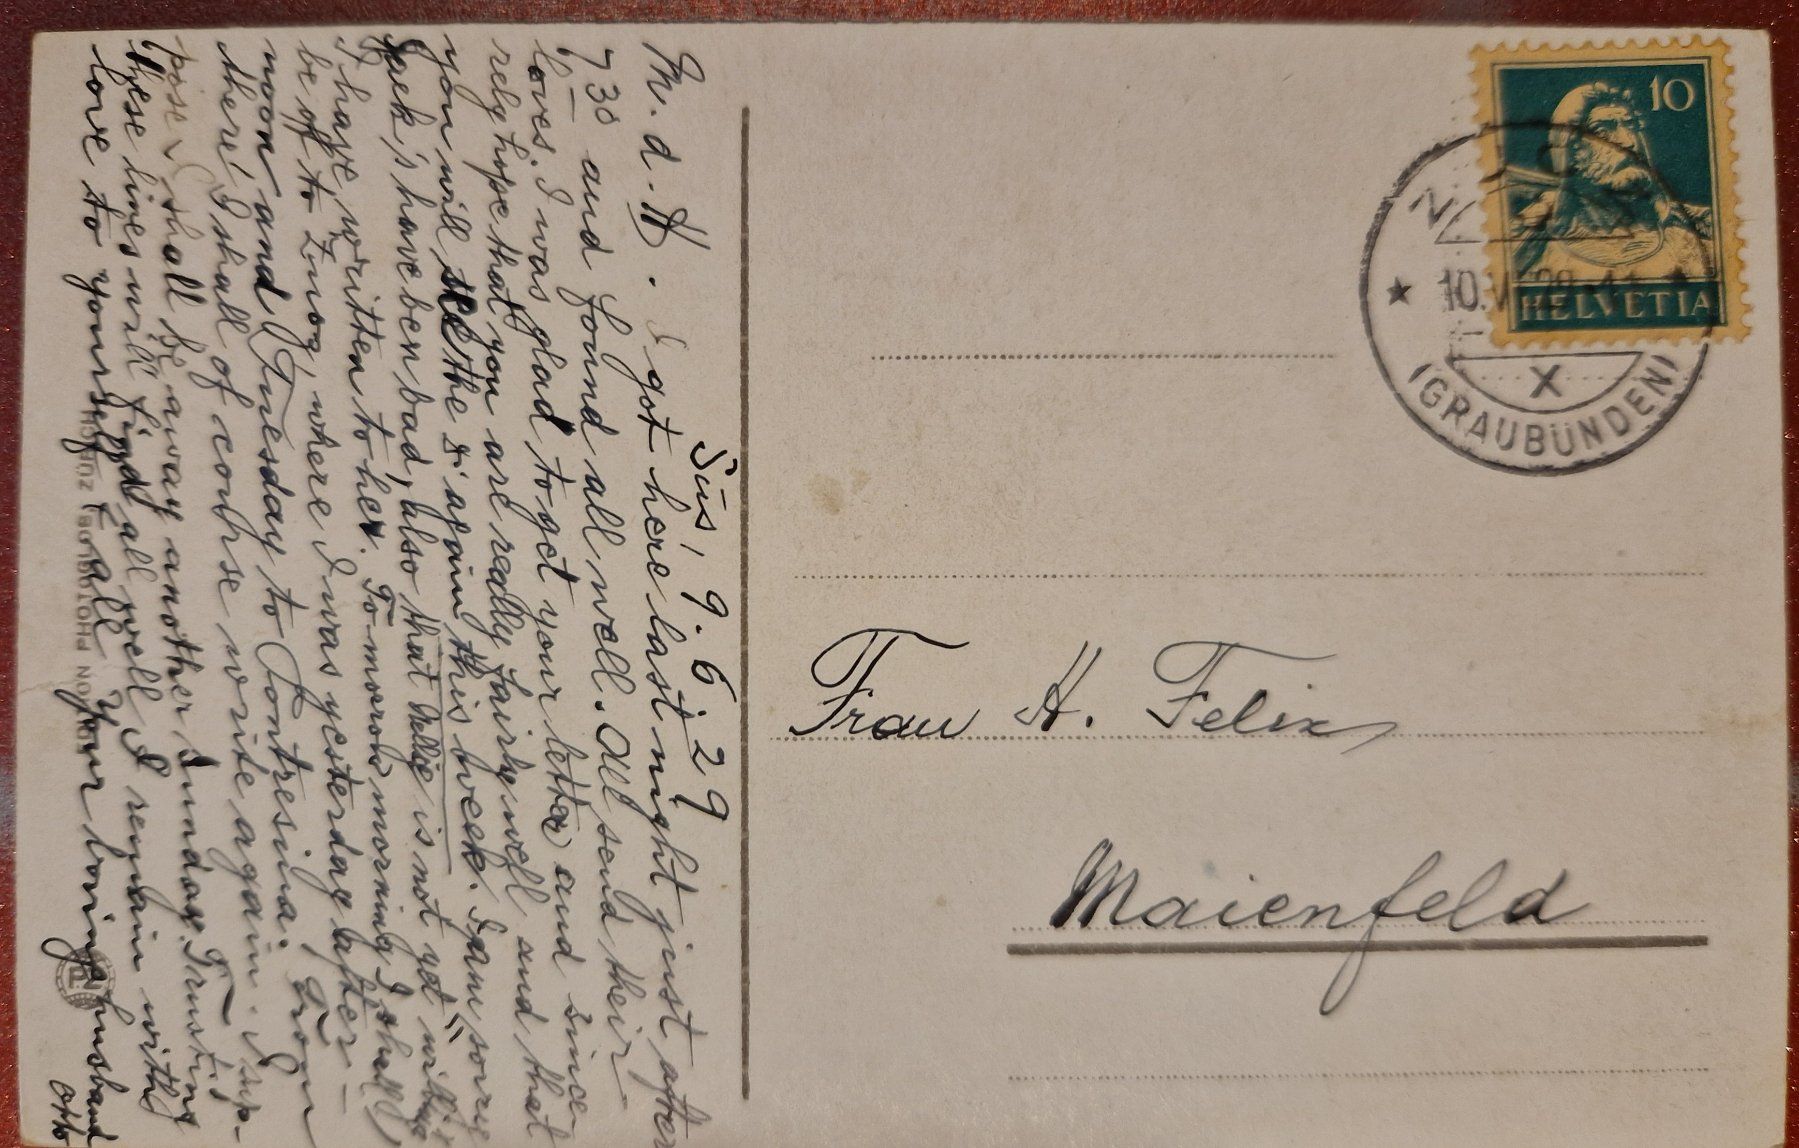 Süs, 9.6.29
M. d. H. I got here last night just after
7 30 and found all well. All send their
loves. I was glad to get your letter and since-
rely hope that you are really fairly well and that
you will see the s' again this week. I am sorry
Jack's have ben bad, also that Nellie is not yet
I have written to her. Tomorow morning I shall
be off to Zuoz, where I was yesterday after-
noon and Tuesday to Pontresina. From
there I shall of course write again. I sup-
pose I shall be away another Sunday. Trusting
these lines will find all well I remain with
love to yourself & all your loving husband
Otto
PHOTOGLOB ZÜRICH
10
HELVETIA
10.VI.29
X
(GRAUBÜNDEN)
Frau H. Felix
Maienfeld